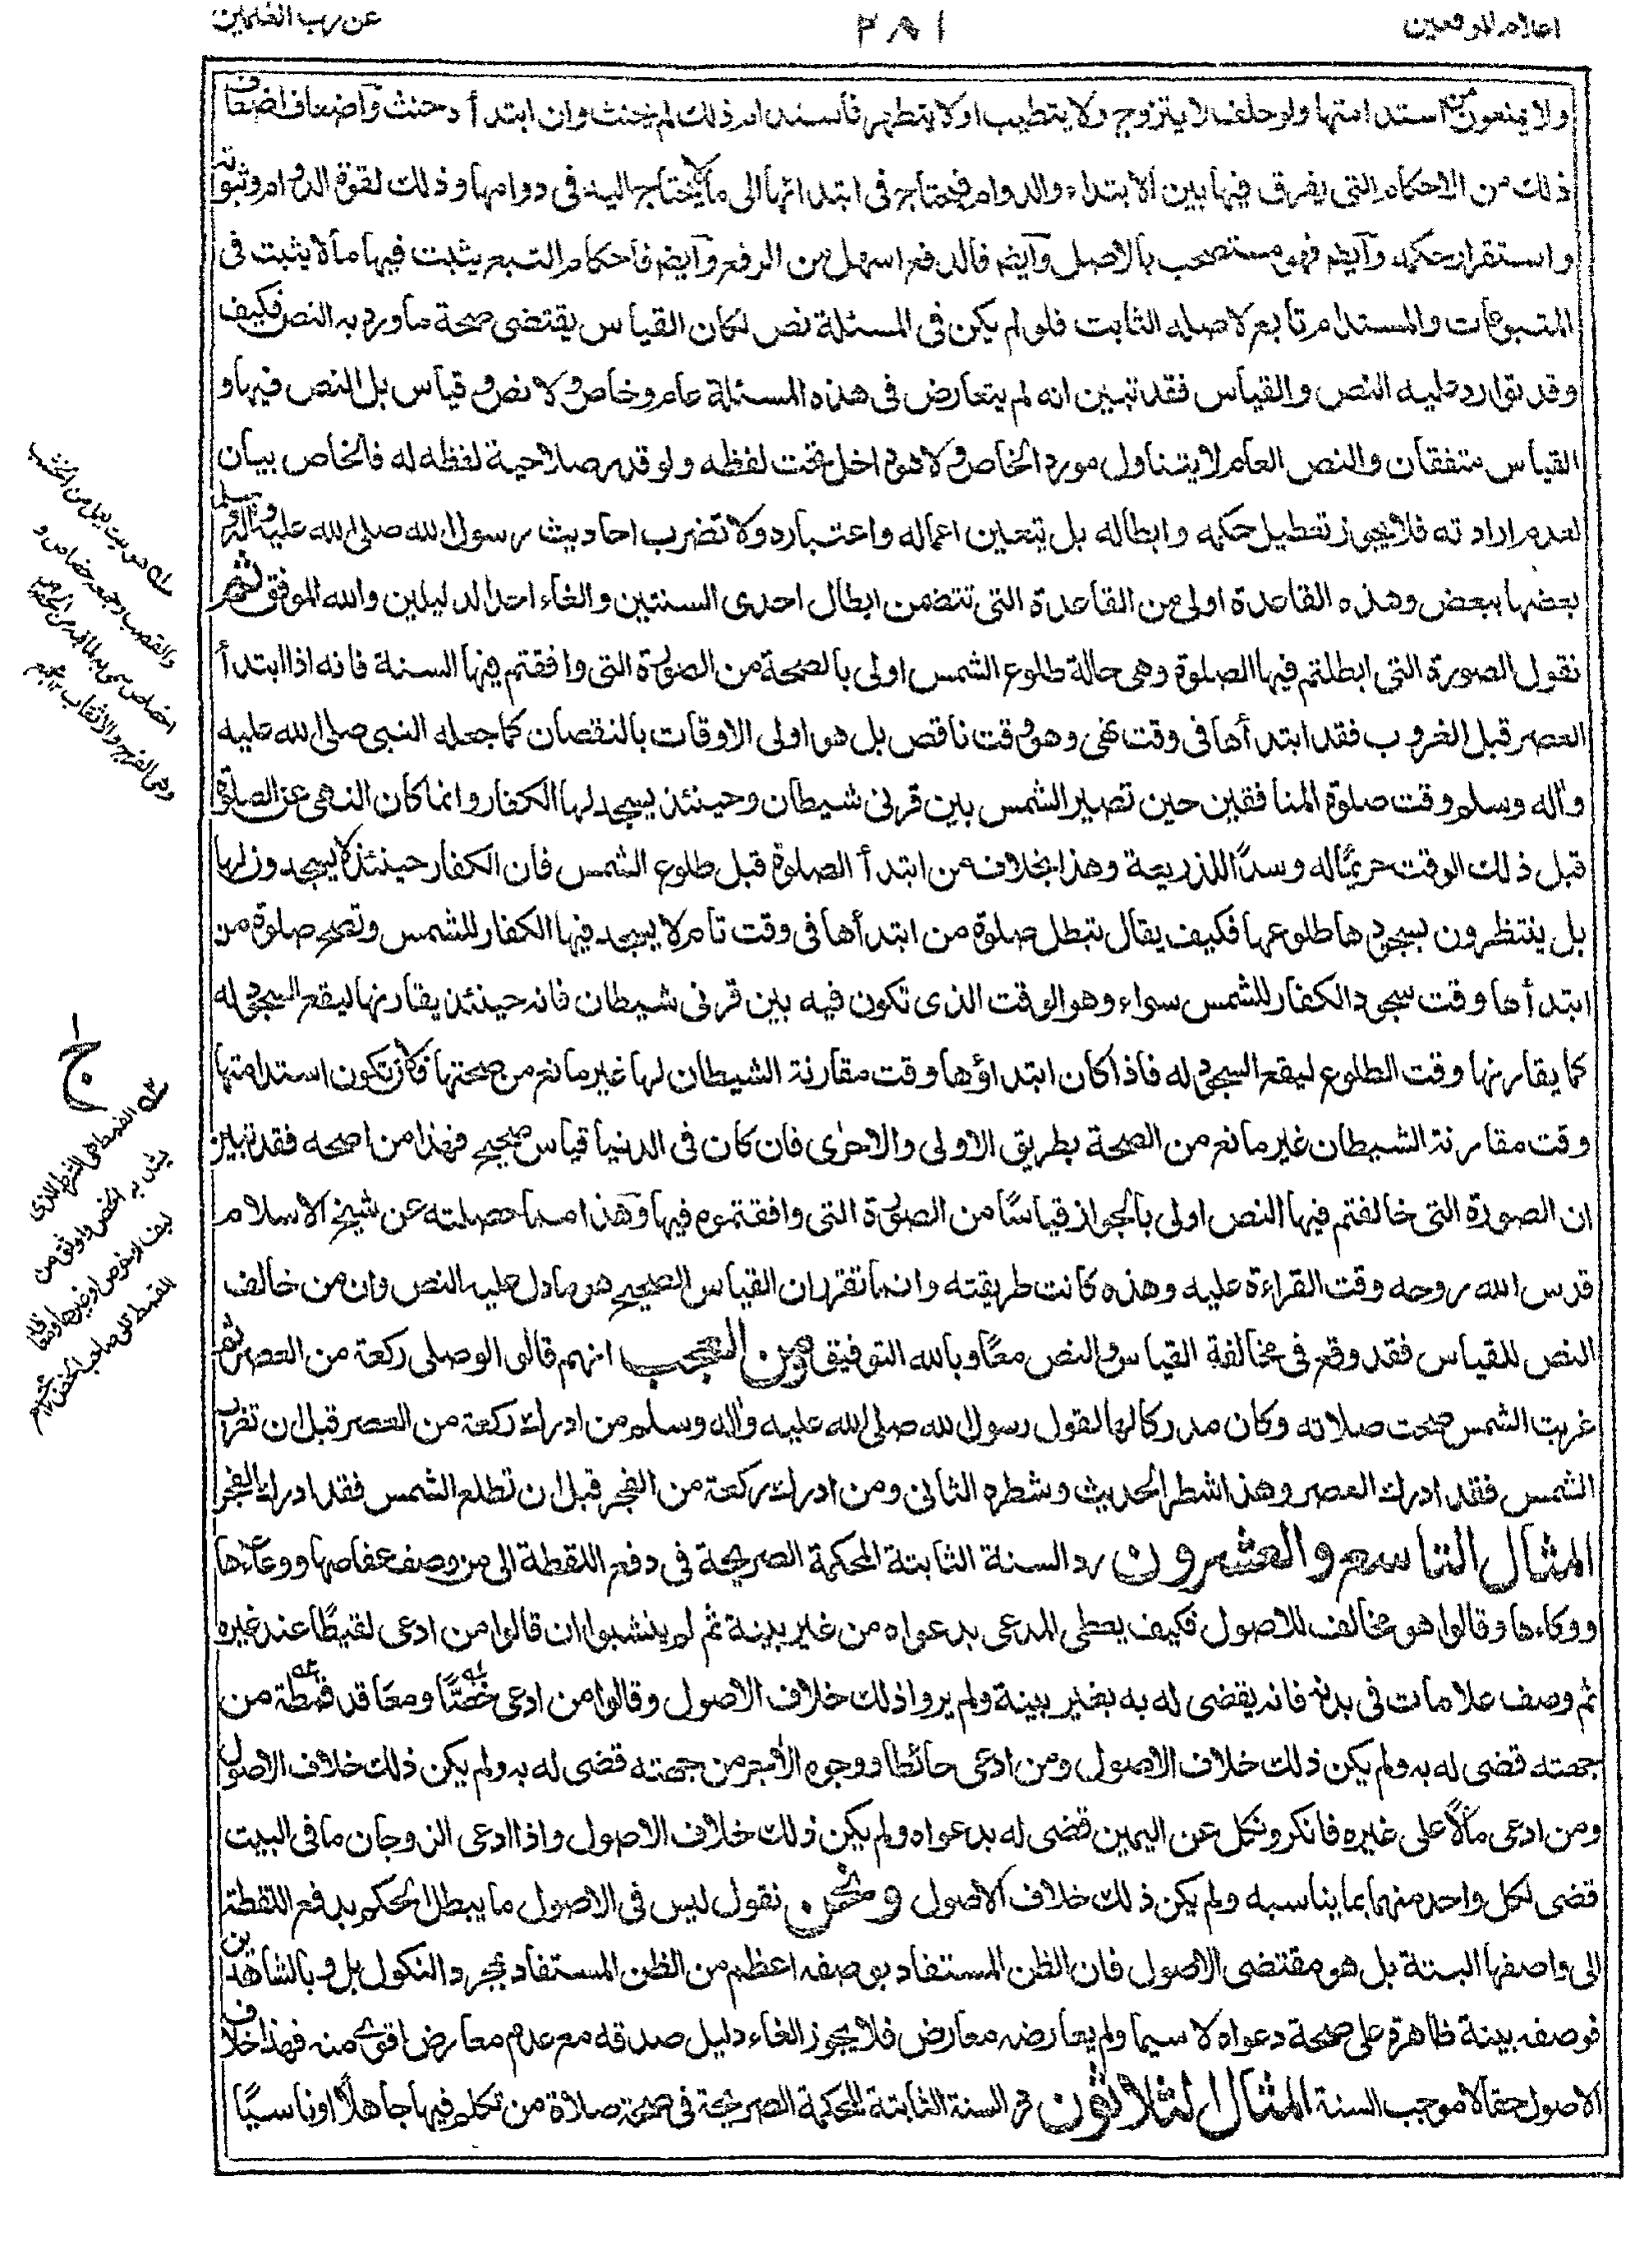 اعلام الموقعين
٢٨١
عن رب العلمين
ولا يمنعون من استدامتها ولو حلف لا يتزوج ولا يتطيب او لا يتطهر فاستدام ذلك لم يحنث وان ابتدأه حنث واضعاف اضعاف
ذلك من الاحكام التى يفرق فيها بين الابتداء والدوام فيحتاج فى ابتدائها الى ما لا يحتاج اليه فى دوامها وذلك لقوة الدوام وثبوته
واستقرار حكمه وآيضا فهو مستصحب بالاصل وآيضا فالدفع اسهل من الرفع وآيضا فاحكام التبع يثبت فيها ما لا يثبت فى
المتبوعات والمستدام تابع لاصله الثابت فلو لم يكن فى المسئلة نص لكان القياس يقتضى صحة ما ورد به النص فكيف
وقد توارد عليه النص والقياس فقد تبين انه لم يتعارض فى هذه المسئلة عام وخاص ولا نص وقياس بل النص فيها و
القياس متفقان والنص العام لا يتناول مورد الخاص ولا هو داخل تحت لفظه ولو قدر صلاحية لفظه له فالخاص بيان
لعدم ارادته فلا يجوز تعطيل حكمه وابطاله بل يتعين اعماله واعتباره ولا تضرب احاديث رسول الله صلى الله عليه وآله وسلم
بعضها ببعض وهذه القاعدة اولى من القاعدة التى تتضمن ابطال احدى السنتين والغاء احد الدليلين والله الموفق ثم
نقول الصورة التى ابطلتم فيها الصلوة وهى حالة طلوع الشمس اولى بالصحة من الصورة التى وافقتم فيها السنة فانه اذا ابتدأ
العصر قبل الغروب فقد ابتدأها فى وقت نهى وهو وقت ناقص بل هو اولى الاوقات بالنقصان كما جعله النبى صلى الله عليه
وآله وسلم وقت صلوة المنافقين حين تصير الشمس بين قرنى شيطان وحينئذ يسجد لها الكفار وانما كان النهى عن الصلوة
قبل ذلك الوقت حريمًا له وسدًا للذريعة وهذا بخلاف من ابتدأ الصلوة قبل طلوع الشمس فان الكفار حينئذ لا يسجدون لها
بل ينتظرون بسجودها طلوعها فكيف يقال تبطل صلوة من ابتدأها فى وقت تام لا يسجد فيها الكفار للشمس وتصح صلوة من
ابتدأها وقت سجود الكفار للشمس سواء وهو الوقت الذى تكون فيه بين قرنى شيطان فانه حينئذ يقارنها ليقع السجود له
كما يقارنها وقت الطلوع ليقع السجود له فاذا كان ابتداؤها وقت مقارنة الشيطان لها غير مانع من صحتها فلان تكون استدامتها
وقت مقارنة الشيطان غير مانع من الصحة بطريق الاولى والاحرى فان كان فى الدنيا قياس صحيح فهذا من اصحه فقد تبين
ان الصورة التى خالفتم فيها النص اولى بالجواز قياسًا من الصورة التى وافقتموه فيها وهذا مما حصلته عن شيخ الاسلام
قدس الله روحه وقت القراءة عليه وهذه كانت طريقته وانما تقرر ان القياس الصحيح هو ما دل عليه النص وان من خالف
النص للقياس فقد وقع فى مخالفة القياس والنص معًا وبالله التوفيق ومن العجب انهم قالوا لو صلى ركعة من العصر ثم
غربت الشمس صحت صلاته وكان مدركا لها لقول رسول الله صلى الله عليه وآله وسلم من ادرك ركعة من العصر قبل ان تغرب
الشمس فقد ادرك العصر وهذا شطر الحديث وشطره الثانى ومن ادرك ركعة من الفجر قبل ان تطلع الشمس فقد ادرك الفجر
المثال التاسع والعشرون رد السنة الثابتة المحكمة الصريحة فى دفع اللقطة الى من وصف عفاصها ووعاءها
ووكاءها وقالوا هو مخالف للاصول فكيف يعطى المدعى بدعواه من غير بينة ثم لم ينشبوا ان قالوا من ادعى لقيطًا عند غيره
ثم وصف علامات فى بدنه فانه يقضى له به بغير بينة ولم يروا ذلك خلاف الاصول وقالوا من ادعى خصًّا ومعاقد قمطه من
جهته قضى له به ولم يكن ذلك خلاف الاصول ومن ادعى حائطا ووجوه الآجر من جهته قضى له به ولم يكن ذلك خلاف الاصول
ومن ادعى مالًا على غيره فانكر ونكل عن اليمين قضى له بدعواه ولم يكن ذلك خلاف الاصول واذا ادعى الزوجان ما فى البيت
قضى لكل واحد منهما بما يناسبه ولم يكن ذلك خلاف الاصول ونحن نقول ليس فى الاصول ما يبطل الحكم بدفع اللقطة
الى واصفها البتة بل هو مقتضى الاصول فان الظن المستفاد بوصفه اعظم من الظن المستفاد بمجرد النكول بل وبالشاهدين
فوصفه بينة ظاهرة على صحة دعواه لا سيما ولم يعارضه معارض فلا يجوز الغاء دليل صدقه مع عدم معارض اقوى منه فهذا خلاف
الاصول حقا لا موجب السنة المثال الثلاثون رد السنة الثابتة المحكمة الصريحة فى صحة صلاة من تكلم فيها جاهلًا او ناسيًا
هو بيت يعمل من الخشب
والقصب وجمعه خصاص و